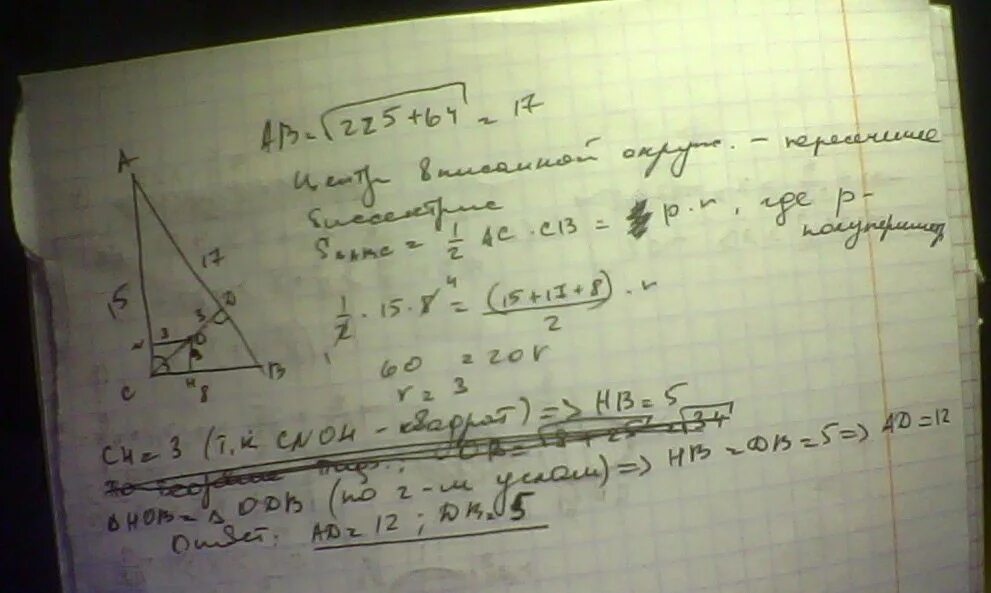 AB = √225+64 = 17
Центр вписанной окруж. - пересечение
биссектрис
S△ABC = 1/2 AC · CB = p · r, где p -
полупериметр
1/2 · 15 · 8 4 = (15+17+8)/2 · r
60 = 20r
r = 3
A
17
15
D
3
3
O
N
3
C
H
B
8
CH = 3 (т.к CNOH - квадрат) => HB = 5
△HOB = △ODB (по 2-м углам) => HB = DB = 5 => AD = 12
Ответ: AD = 12 ; DB = 5